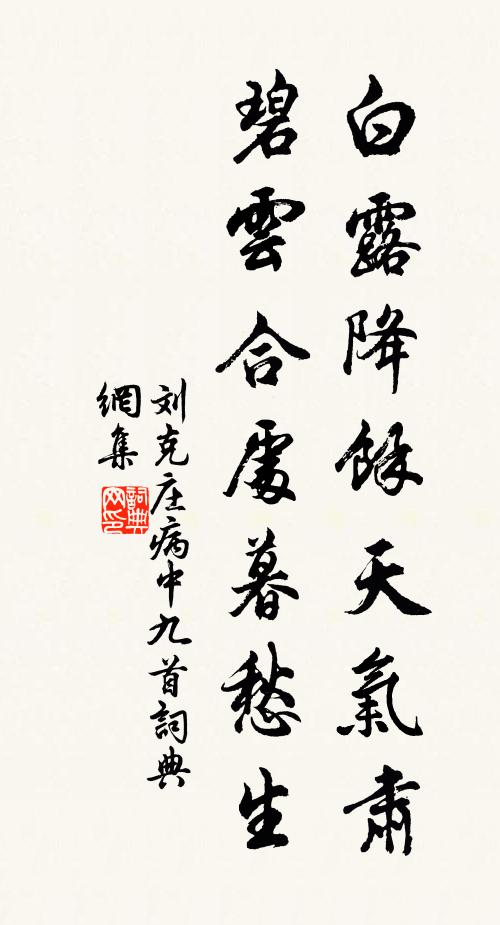 白露降餘天氣肅
碧雲合處暮愁生
刘克庄病中九首詞典
網集
詞典
网印